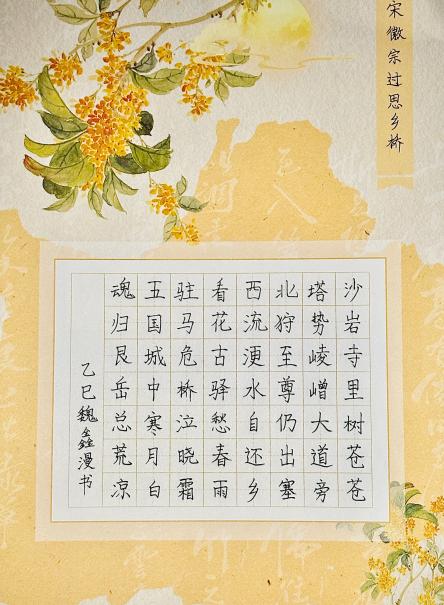 宋徽宗过思乡桥
沙岩寺里树苍苍
塔势崚嶒大道旁
北狩至尊仍出塞
西流浭水自还乡
看花古驿愁春雨
驻马危桥泣晓霜
五国城中寒月白
魂归艮岳总荒凉
乙巳魏鑫漫书